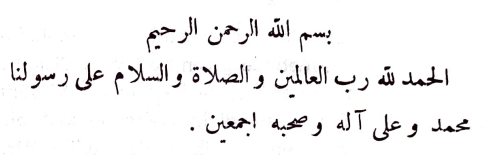 بسم الله الرحمن الرحيم
الحمد لله رب العالمين والصلاة والسلام على رسولنا
محمد وعلى آله وصحبه اجمعين .